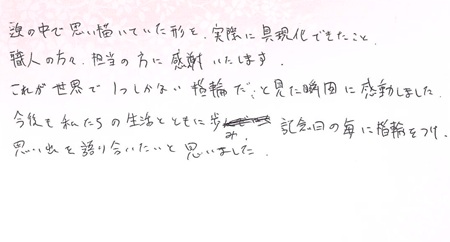 頭の中で思い描いていた形を、実際に具現化できたこと、
職人の方々、担当の方に感謝いたします。
これが世界で1つしかない指輪だ、と見た瞬間に感動しました。
今後も私たちの生活とともに歩み、記念日の毎に指輪をつけ、
思い出を語り合いたいと思いました。